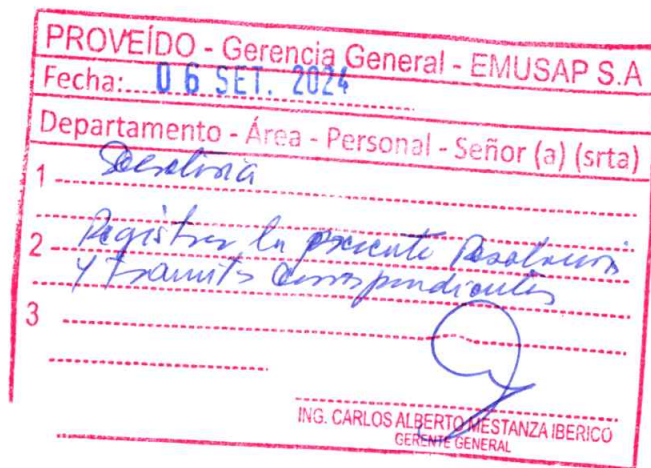 PROVEÍDO - Gerencia General - EMUSAP S.A
Fecha: 06 SET. 2024
Departamento - Área - Personal - Señor (a) (srta)
1
Registrar la presente Resolucion
2
y tramites correspondientes
3
ING. CARLOS ALBERTO MESTANZA IBERICO
GERENTE GENERAL